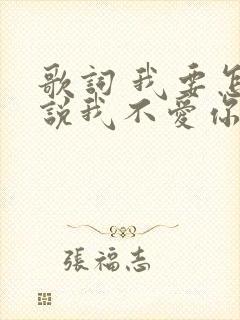 歌詞 我要怎
說我不愛你
張福志